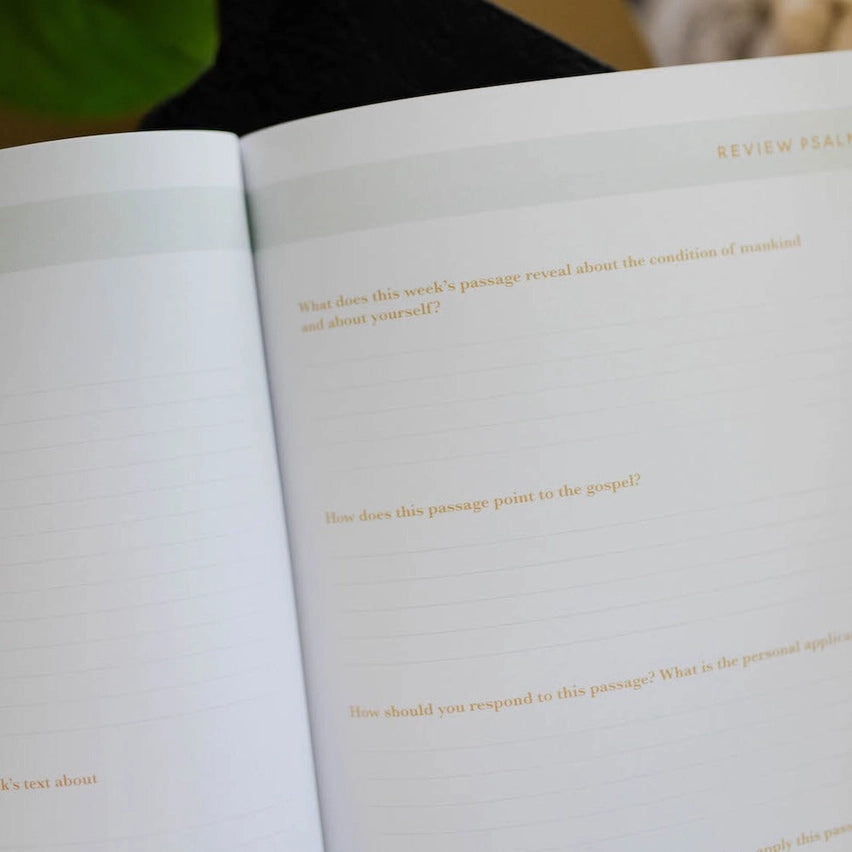 k's text about
REVIEW
What does this week's passage reveal about the condition of mankind
and about yourself?
How does this passage point to the gospel?
How should you respond to this passage? What is the personal
apply this